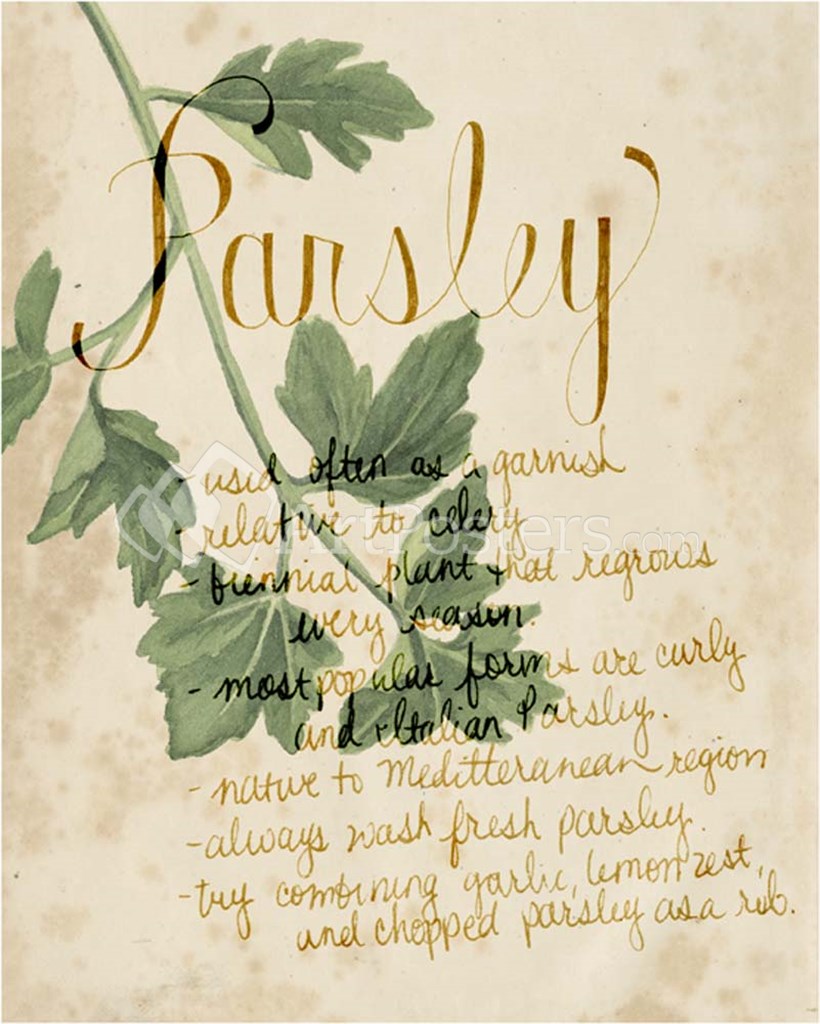 Parsley
- used often as a garnish
- relative to celery
ArtPosters.com
- biennial plant that regrows
every season.
- most popular forms are curly
and Italian Parsley.
- native to Meditteranean region
- always wash fresh parsley.
- try combining garlic, lemon zest,
and chopped parsley as a rub.